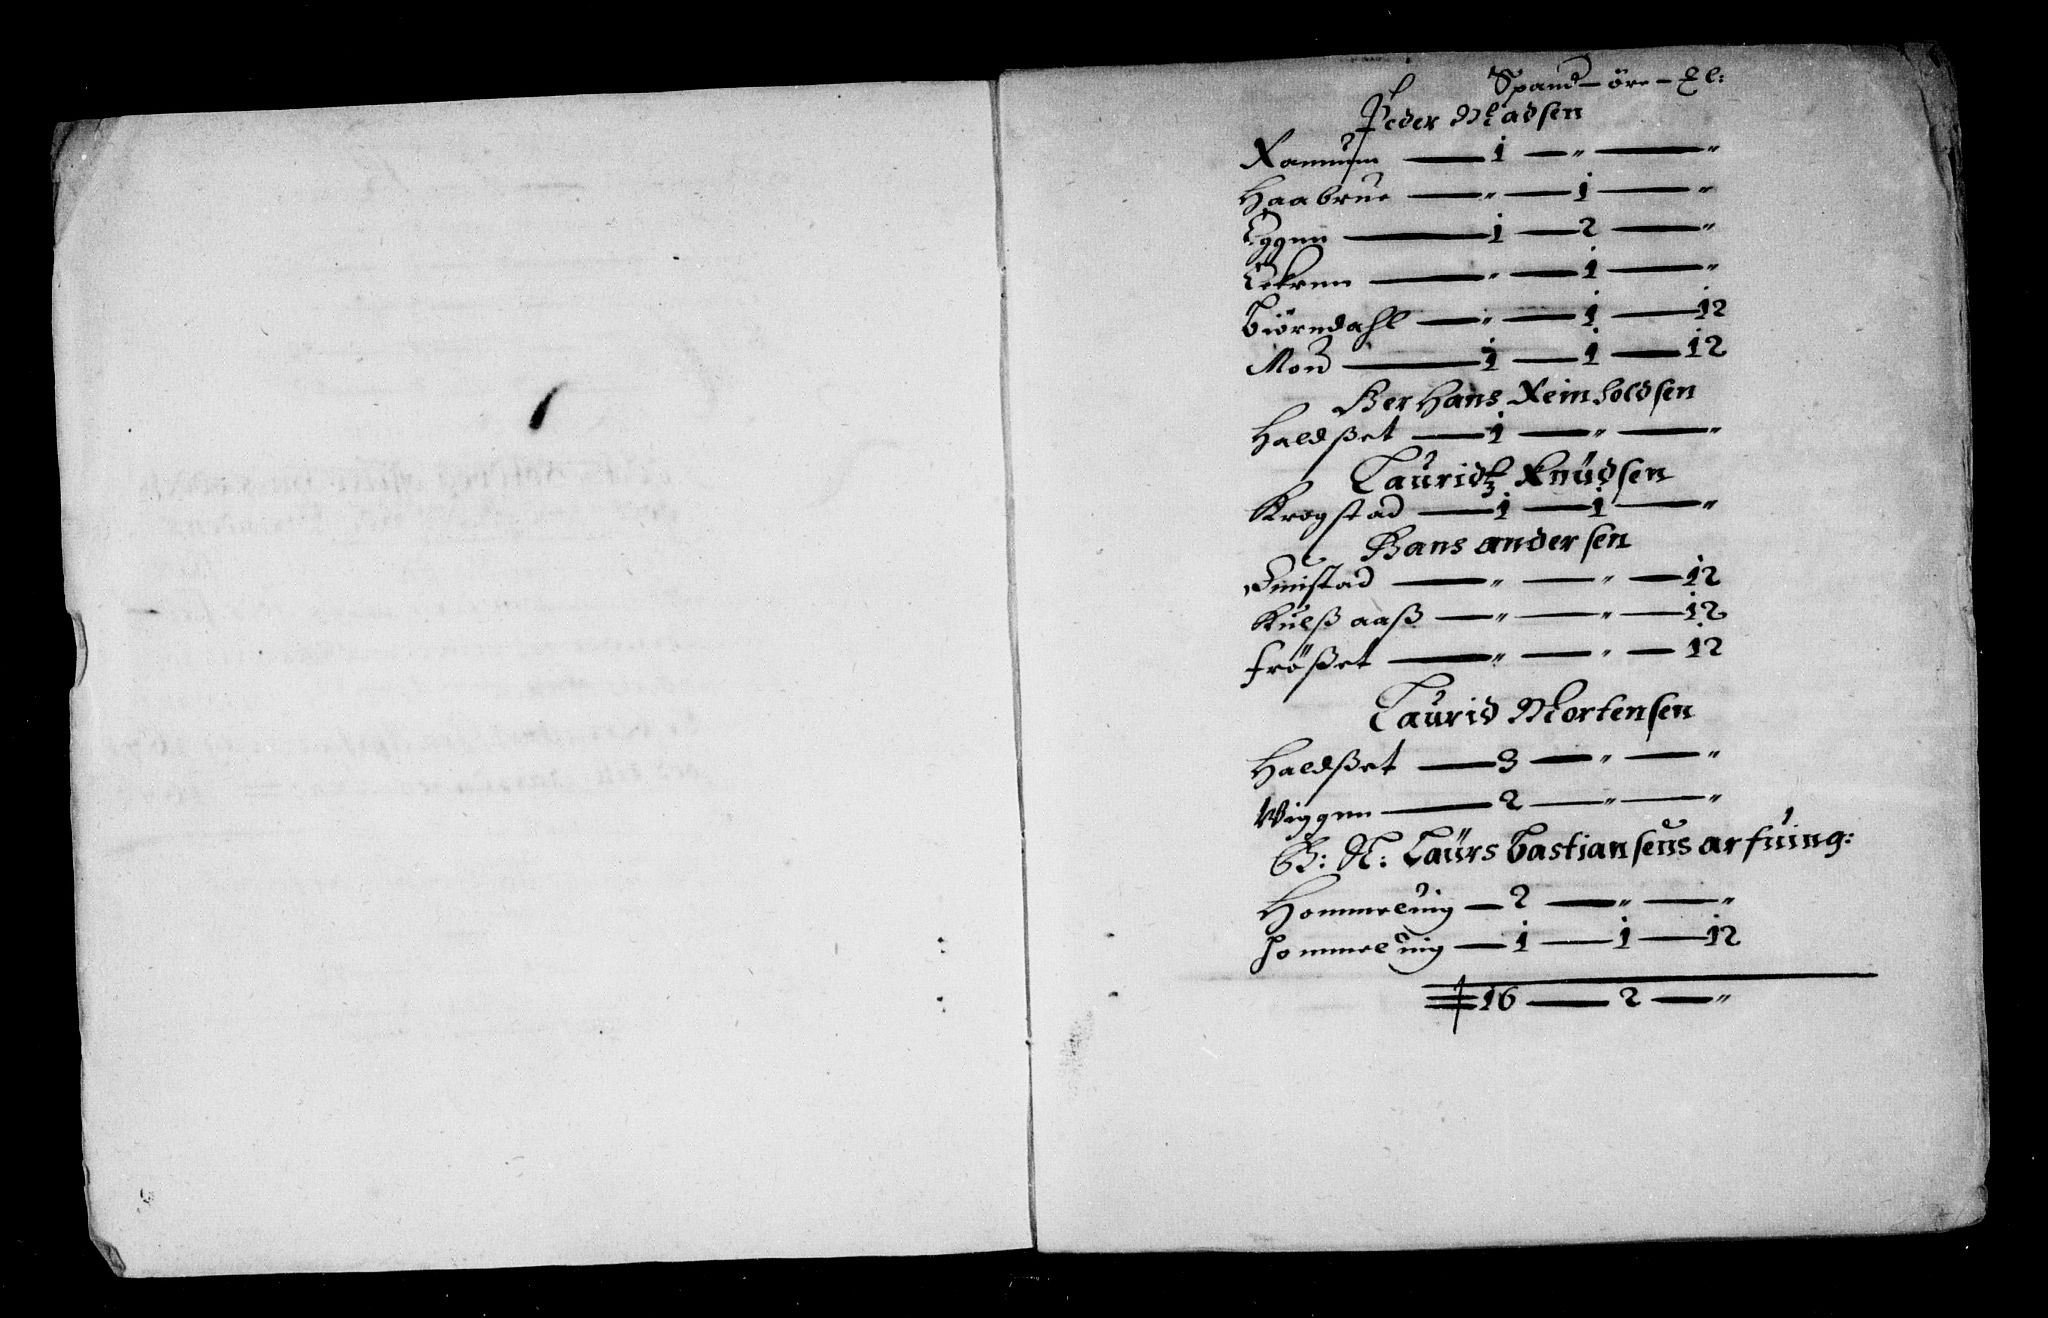 Spand — öre — Ml:
Peder Madsen
Ramum — 1 — " — "
Haabrue — " — 1 — "
Eggen — 1 — 2 — "
Eckren — " — 1 — "
Biörndahl — " — 1 — 12
Mou — 1 — 1 — 12
Her Hans Reinholdsen
Haldßet — 1 — " — "
Lauridtz Knudsen
Krogstad — 1 — 1 — "
Hans andersen
Emstad — " — " — 12
Kulß aaß — " — " — 12
frößet — " — " — 12
Laurid Mortensen
Haldßet — 3 — " — "
Wiggen — 2 — " — "
S: H: Laurs Bastiansens arfuing:
Hommeluig — 2 — " — "
Hommeluig — 1 — 1 — 12
16 — 2 — "